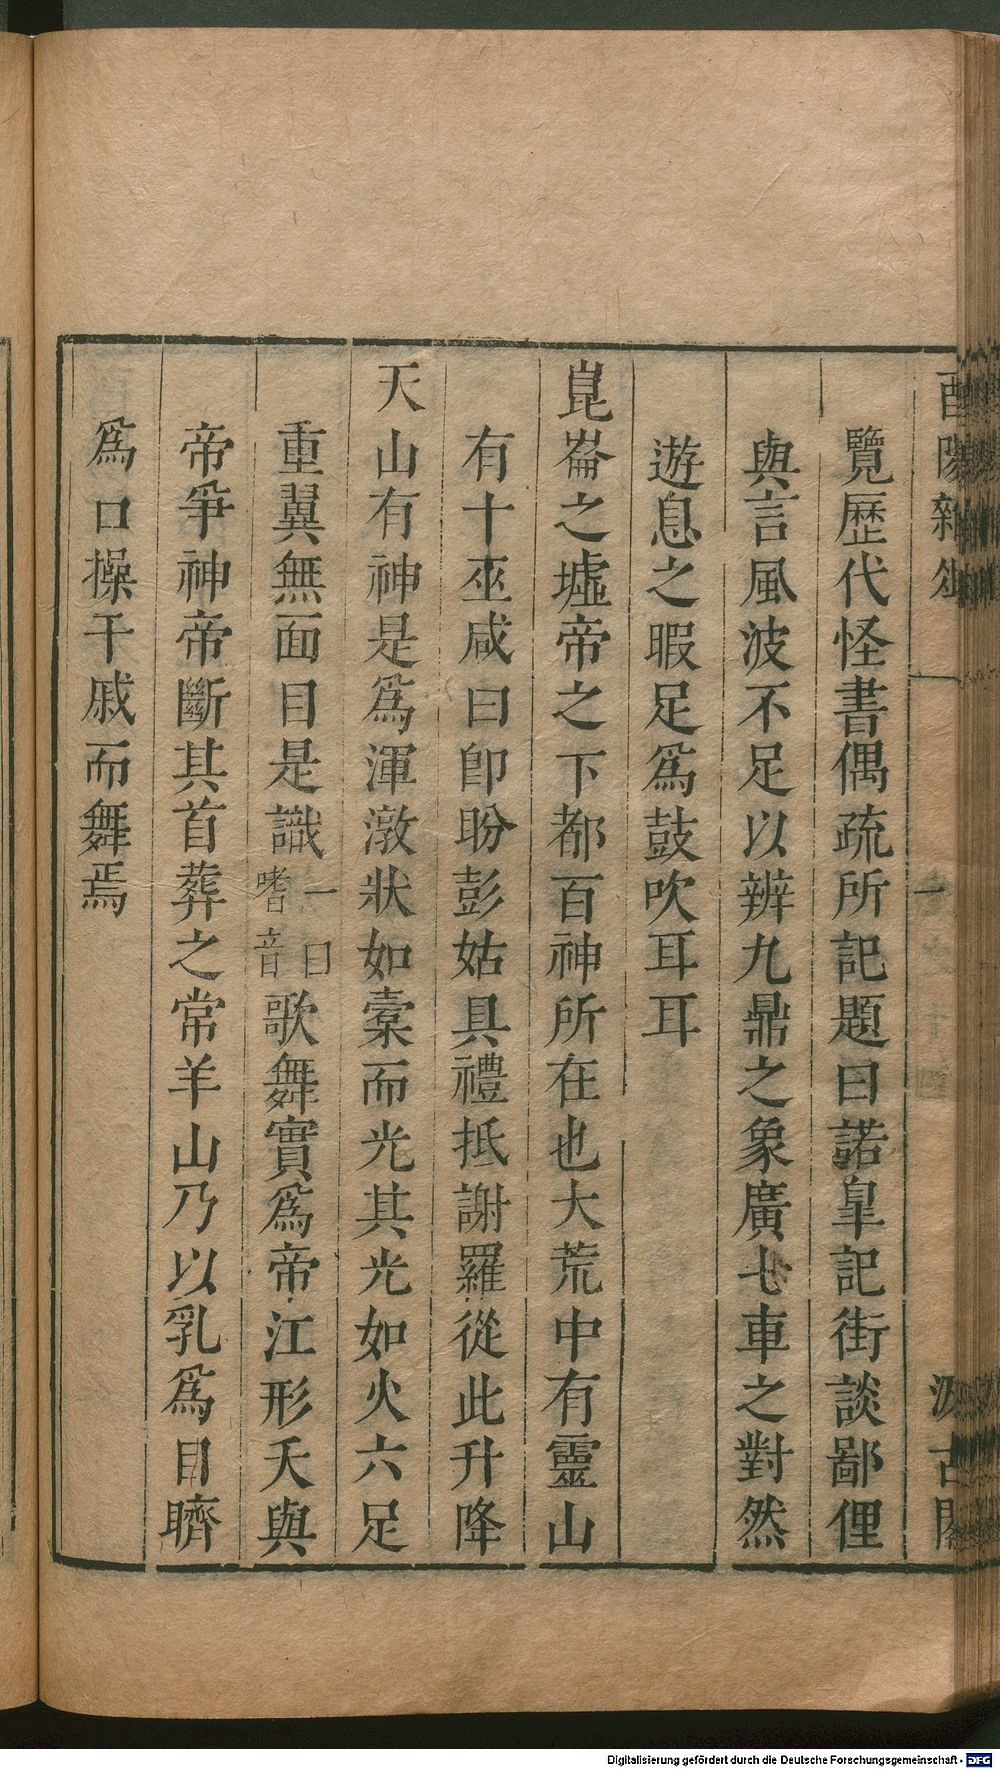 酉陽雜俎
汲古閣
覽歷代怪書偶疏所記題曰諾皐記街談鄙俚
與言風波不足以辨九鼎之象廣七車之對然
遊息之暇足爲鼓吹耳耳
崑崙之墟帝之下都百神所在也大荒中有靈山
有十巫咸曰卽盼彭姑具禮抵謝羅從此升降
天山有神是爲渾潡狀如橐而光其光如火六足
重翼無面目是識一曰嗜音歌舞實爲帝江形夭與
帝爭神帝斷其首葬之常羊山乃以乳爲目臍
爲口操干戚而舞焉
Digitalisierung gefördert durch die Deutsche Forschungsgemeinschaft - DFG